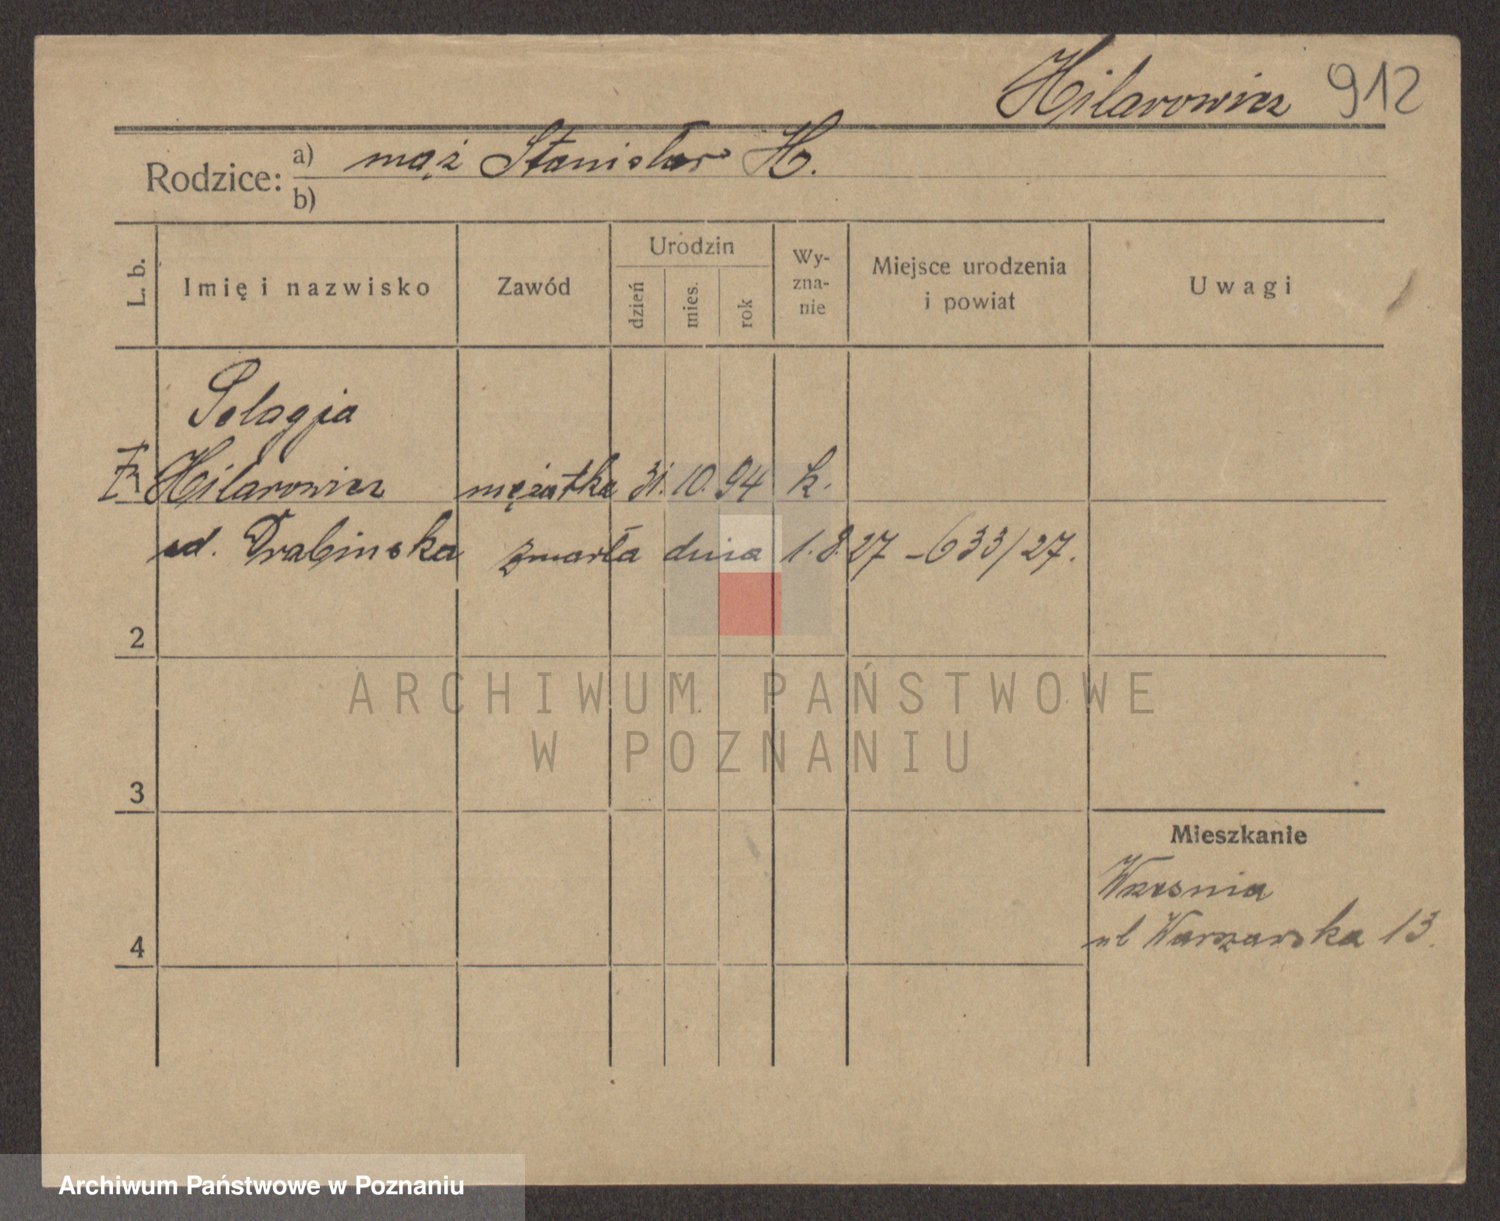 Hilarowicz 912
Rodzice: a) mąż Stanisław H.
b)
L. b.
Imię i nazwisko
Zawód
Urodzin
dzień
mies.
rok
Wy-
zna-
nie
Miejsce urodzenia
i powiat
Uwagi
Pelagja
Hilarowicz mężatka 31. 10. 94 k.
Drabinska zmarła dnia 1.8.27 – 633/27.
2
3
4
Mieszkanie
Wrzesnia
ul Warszawska 13.
ARCHIWUM PAŃSTWOWE
W POZNANIU
Archiwum Państwowe w Poznaniu